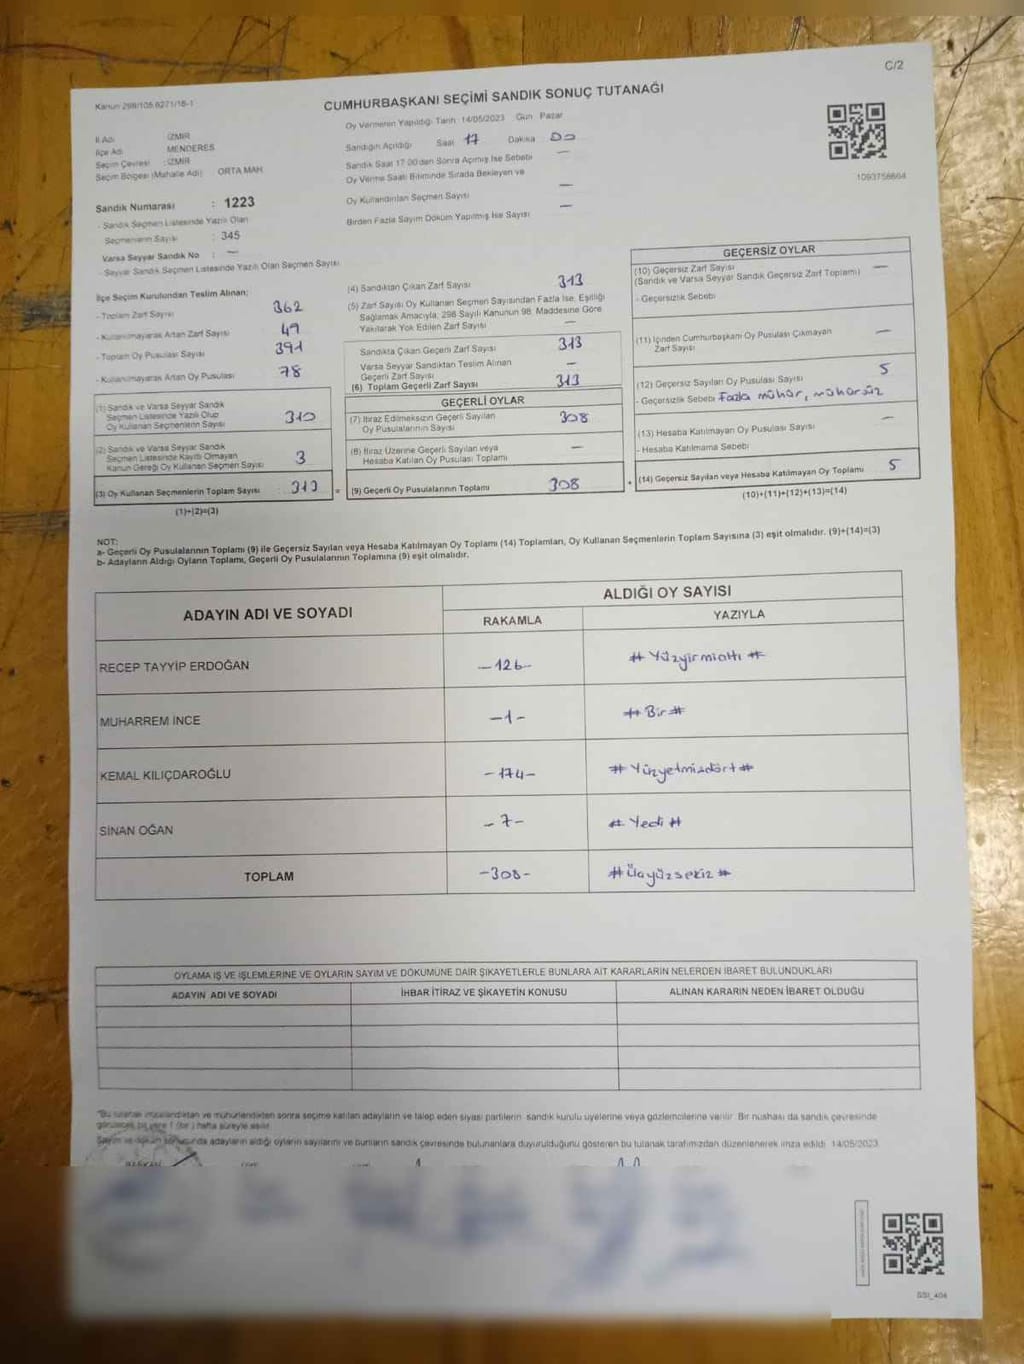 C/2
Kanun 298/105,6271/18-1
CUMHURBAŞKANI SEÇİMİ SANDIK SONUÇ TUTANAĞI
1093758664
İl Adı İZMİR
İlçe Adı MENDERES
Seçim Çevresi : İZMİR
Seçim Bölgesi (Mahalle Adı) ORTA MAH.
Sandık Numarası : 1223
- Sandık Seçmen Listesinde Yazılı Olan
Seçmenlerin Sayısı : 345
Varsa Seyyar Sandık No : —
- Seyyar Sandık Seçmen Listesinde Yazılı Olan Seçmen Sayısı
Oy Vermenin Yapıldığı Tarih: 14/05/2023 Gün Pazar
Sandığın Açıldığı Saat 17 Dakika 00
Sandık Saat 17.00'den Sonra Açılmış İse Sebebi —
Oy Verme Saati Bitiminde Sırada Bekleyen ve
Oy Kullandırılan Seçmen Sayısı —
Birden Fazla Sayım Döküm Yapılmış İse Sayısı —
İlçe Seçim Kurulundan Teslim Alınan;
- Toplam Zarf Sayısı 362
- Kullanılmayarak Artan Zarf Sayısı 49
- Toplam Oy Pusulası Sayısı 391
- Kullanılmayarak Artan Oy Pusulası 78
(1) Sandık ve Varsa Seyyar Sandık
Seçmen Listesinde Yazılı Olup
Oy Kullanan Seçmenlerin Sayısı 310
(2) Sandık ve Varsa Seyyar Sandık
Seçmen Listesinde Kayıtlı Olmayan
Kanun Gereği Oy Kullanan Seçmen Sayısı 3
(3) Oy Kullanan Seçmenlerin Toplam Sayısı : 313 =
(1)+(2)=(3)
(4) Sandıktan Çıkan Zarf Sayısı 313
(5) Zarf Sayısı Oy Kullanan Seçmen Sayısından Fazla İse, Eşitliği
Sağlamak Amacıyla, 298 Sayılı Kanunun 98. Maddesine Göre
Yakılarak Yok Edilen Zarf Sayısı —
Sandıkta Çıkan Geçerli Zarf Sayısı 313
Varsa Seyyar Sandıktan Teslim Alınan
Geçerli Zarf Sayısı —
(6) Toplam Geçerli Zarf Sayısı 313
GEÇERLİ OYLAR
(7) İtiraz Edilmeksizin Geçerli Sayılan
Oy Pusulalarının Sayısı 308
(8) İtiraz Üzerine Geçerli Sayılan veya
Hesaba Katılan Oy Pusulası Toplamı —
(9) Geçerli Oy Pusulalarının Toplamı 308 +
GEÇERSİZ OYLAR
(10) Geçersiz Zarf Sayısı —
(Sandık ve Varsa Seyyar Sandık Geçersiz Zarf Toplamı)
- Geçersizlik Sebebi
(11) İçinden Cumhurbaşkanı Oy Pusulası Çıkmayan —
Zarf Sayısı
(12) Geçersiz Sayılan Oy Pusulası Sayısı 5
- Geçersizlik Sebebi Fazla mühür, mühürsüz
(13) Hesaba Katılmayan Oy Pusulası Sayısı —
- Hesaba Katılmama Sebebi
(14) Geçersiz Sayılan veya Hesaba Katılmayan Oy Toplamı 5
(10)+(11)+(12)+(13)=(14)
NOT:
a- Geçerli Oy Pusulalarının Toplamı (9) ile Geçersiz Sayılan veya Hesaba Katılmayan Oy Toplamı (14) Toplamları, Oy Kullanan Seçmenlerin Toplam Sayısına (3) eşit olmalıdır. (9)+(14)=(3)
b- Adayların Aldığı Oyların Toplamı, Geçerli Oy Pusulalarının Toplamına (9) eşit olmalıdır.
ADAYIN ADI VE SOYADI
ALDIĞI OY SAYISI
RAKAMLA YAZIYLA
RECEP TAYYİP ERDOĞAN -126- # Yüzyirmialtı #
MUHARREM İNCE -1- # Bir #
KEMAL KILIÇDAROĞLU -174- # Yüzyetmişdört #
SİNAN OĞAN -7- # Yedi #
TOPLAM -308- # Üçyüzsekiz #
OYLAMA İŞ VE İŞLEMLERİNE VE OYLARIN SAYIM VE DÖKÜMÜNE DAİR ŞİKAYETLERLE BUNLARA AİT KARARLARIN NELERDEN İBARET BULUNDUKLARI
ADAYIN ADI VE SOYADI İHBAR İTİRAZ VE ŞİKAYETİN KONUSU ALINAN KARARIN NEDEN İBARET OLDUĞU
"Bu tutanak imzalandıktan ve mühürlendikten sonra seçime katılan adayların ve talep eden siyasi partilerin sandık kurulu üyelerine veya gözlemcilerine verilir. Bir nüshası da sandık çevresinde
görülecek bir yere 1 (bir) hafta süreyle asılır.
Sayım ve döküm sonucunda adayların aldığı oyların sayılarını ve bunların sandık çevresinde bulunanlara duyurulduğunu gösteren bu tutanak tarafımızdan düzenlenerek imza edildi. 14/05/2023
BAŞKAN
SSI_404